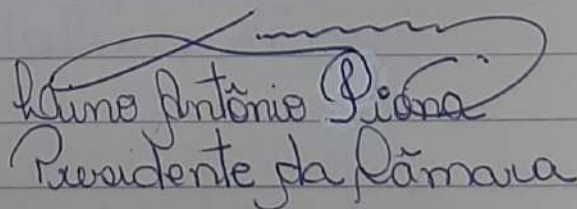 Antônio Piona
Presidente da Câmara